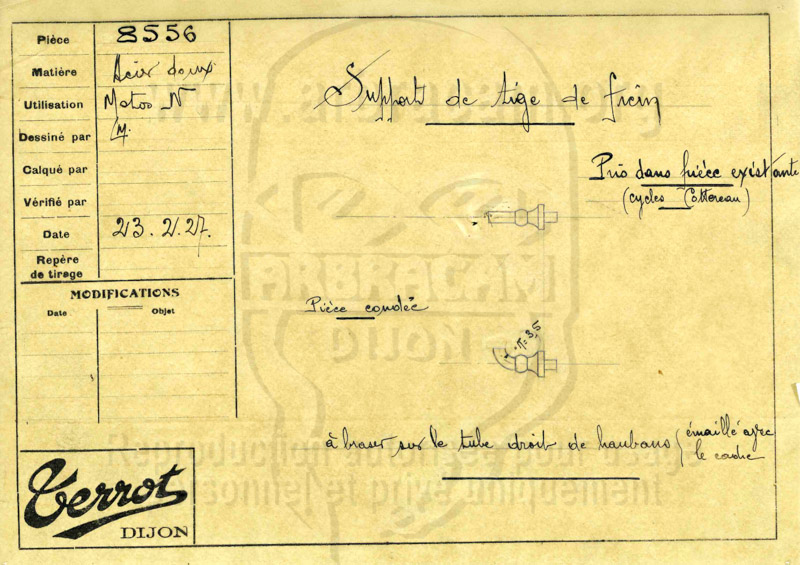 Pièce 8556
Matière Acier doux
Utilisation Motos N
Dessiné par
Calqué par
Vérifié par
Date 23.2.27.
Repère
de tirage
MODIFICATIONS
Date Objet
Support de tige de frein
Pris dans pièce existante
(cycles Cottereau)
Pièce coudée
R=3,5
à braser sur le tube droit de haubans (émaillé avec
le cadre
Terrot
DIJON
ARBRACAM
Reproduction
personnel et privé uniquement